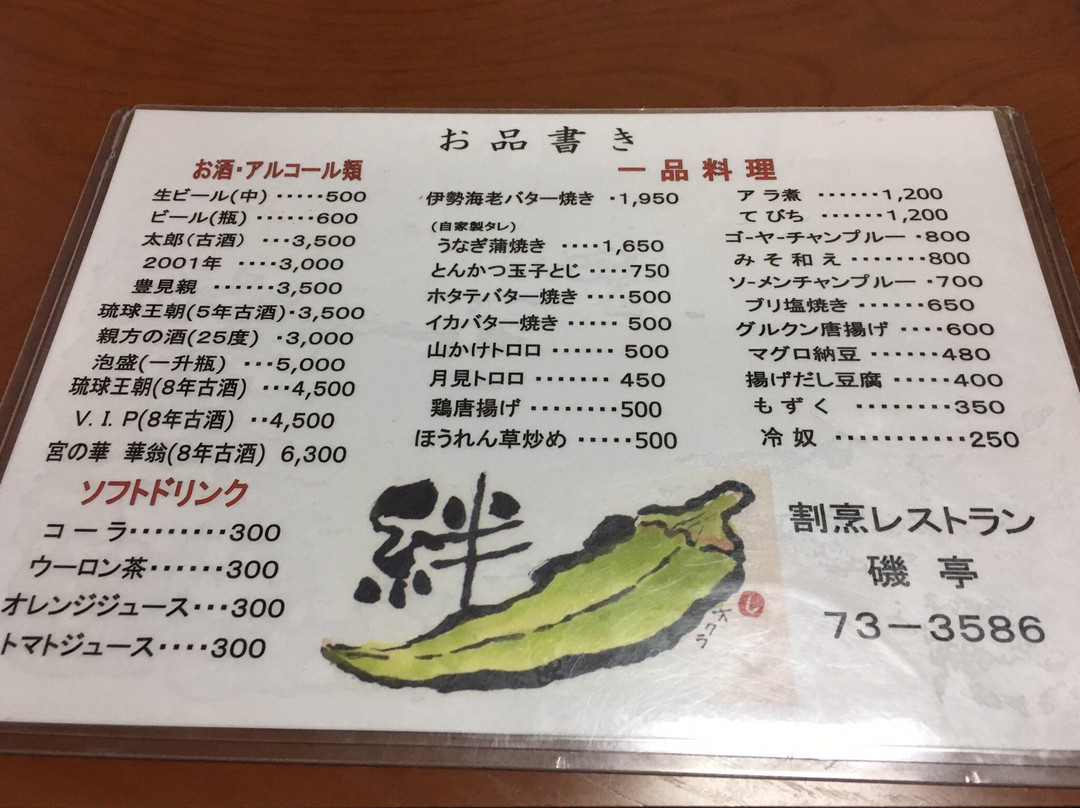 お品書き
お酒・アルコール類
生ビール(中) ・・・・・500
ビール(瓶) ・・・・・・600
太郎(古酒) ・・・3,500
2001年 ・・・・3,000
豊見親 ・・・・・・3,500
琉球王朝(5年古酒)・3,500
親方の酒(25度) ・3,000
泡盛(一升瓶) ・・・5,000
琉球王朝(8年古酒) ・・・4,500
V.I.P(8年古酒) ・・4,500
宮の華 華翁(8年古酒) 6,300
ソフトドリンク
コーラ・・・・・・・・300
ウーロン茶・・・・・・300
オレンジジュース・・・300
トマトジュース・・・・300
一品料理
伊勢海老バター焼き ・1,950
(自家製タレ)
うなぎ蒲焼き ・・・・1,650
とんかつ玉子とじ ・・・・750
ホタテバター焼き ・・・・500
イカバター焼き ・・・・・ 500
山かけトロロ ・・・・・・ 500
月見トロロ ・・・・・・・ 450
鶏唐揚げ ・・・・・・・・500
ほうれん草炒め ・・・・・500
アラ煮 ・・・・・・・1,200
てびち ・・・・・・・1,200
ゴーヤーチャンプルー ・800
みそ和え ・・・・・・・・800
ソーメンチャンプルー ・700
ブリ塩焼き ・・・・・・650
グルクン唐揚げ ・・・・600
マグロ納豆 ・・・・・・480
揚げだし豆腐 ・・・・・400
もずく ・・・・・・・・350
冷奴 ・・・・・・・・・・・250
絆
し
割烹レストラン
磯亭
73－3586